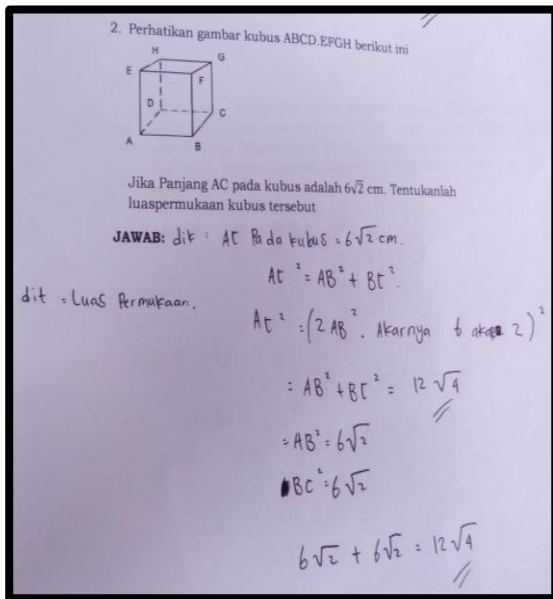 2. Perhatikan gambar kubus ABCD.EFGH berikut ini
H
G
E
F
D
C
A
B
Jika Panjang AC pada kubus adalah 6√2 cm. Tentukanlah
luaspermukaan kubus tersebut
JAWAB: dik : AC Pada kubus = 6√2 cm.
AC² = AB² + BC².
dit = Luas Permukaan.
AC² = (2 AB². Akarnya 6 akar 2)²
= AB² + BC² = 12√4
= AB² = 6√2
BC² = 6√2
6√2 + 6√2 = 12√4